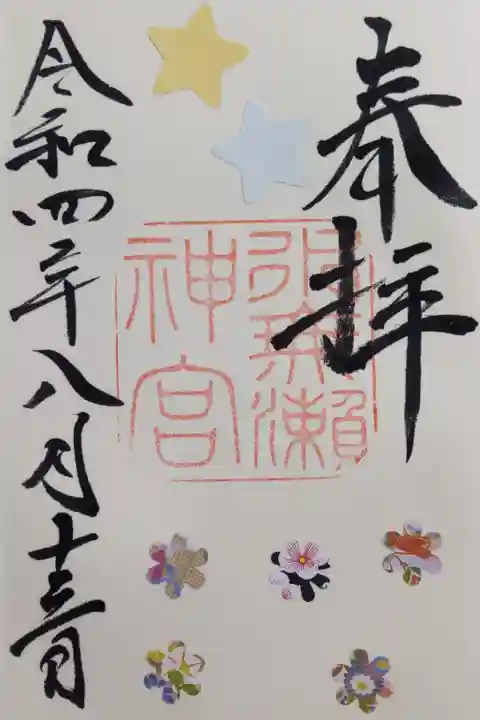 奉拝
神宮
令和四年八月十三日